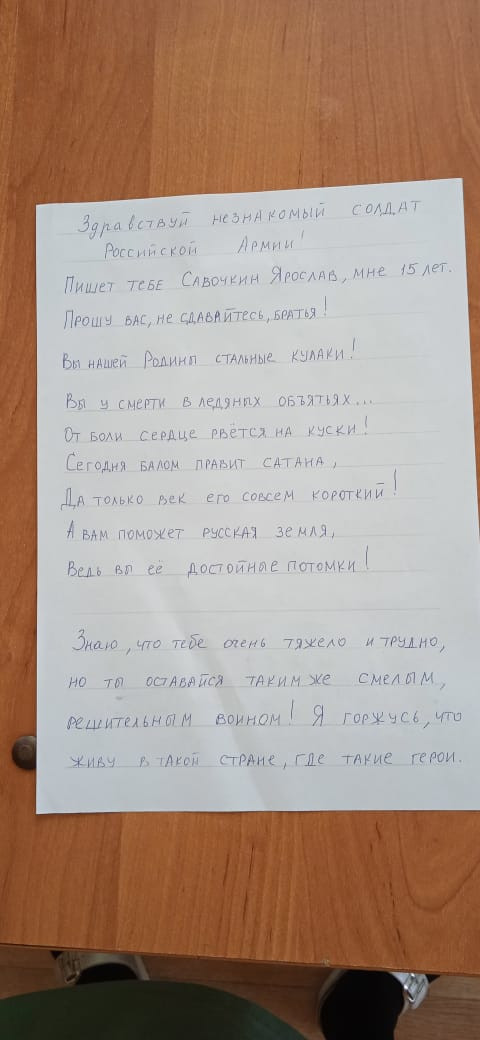 Здравствуй незнакомый солдат
Российской Армии!
Пишет тебе Савочкин Ярослав, мне 15 лет.
Прошу вас, не сдавайтесь, братья!
Вы нашей Родины стальные кулаки!
Вы у смерти в ледяных объятьях...
От боли сердце рвётся на куски!
Сегодня балом правит сатана,
Да только век его совсем короткий!
А вам поможет русская земля,
Ведь вы её достойные потомки!
Знаю, что тебе очень тяжело и трудно,
но ты оставайся таким же смелым,
решительным воином! Я горжусь, что
живу в такой стране, где такие герои.